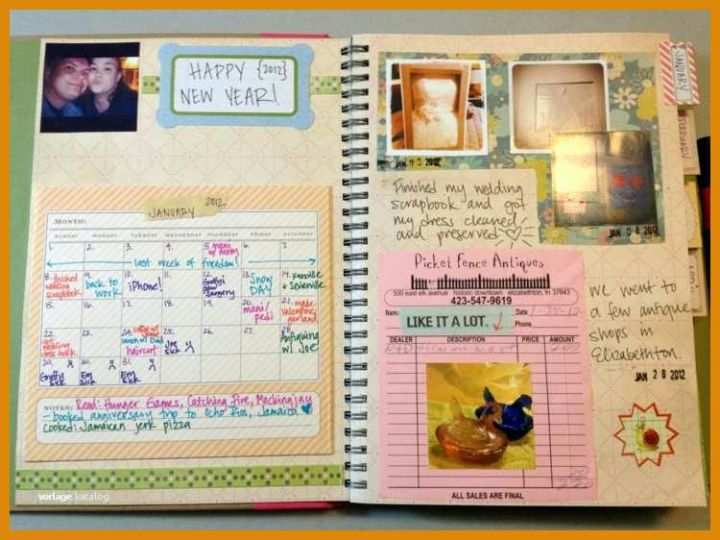 HAPPY {2012}
NEW YEAR!
JANUARY 2012
MONTH:
SUNDAY MONDAY TUESDAY WEDNESDAY THURSDAY FRIDAY SATURDAY
1. 2. 3. 4. 5. 6. 7.
last week of freedom!
8. finished wedding scrapbook
9. back to work
10. iPhone!
11.
12. surgery
13. Snow DAY
14. Knoxville + Sevierville
15. 16. 17. 18. 19.
20. mani/pedi
21. made valentine garland
24. haircut
25. Joe sick
26. 27.
28. Antiquing w/ Joe
30. sick
31. Em sick
NOTES: Read: Hunger Games, Catching Fire, Mockingjay
- booked anniversary trip to Ocho Rios, Jamaica
cooked: Jamaican jerk pizza
vorlage katalog
JANUARY
JAN 2012
JAN 2012
Finished my wedding
scrapbook and got
my dress cleaned
and preserved!
Picket Fence Antiques
500 east elk avenue historic downtown elizabethton, tn 37643
423-547-9619
Name Date
LIKE IT A LOT. Phone
DEALER DESCRIPTION PRICE AMOUNT
ALL SALES ARE FINAL
we went to
a few antique
shops in
Elizabethton.
JAN 28 2012